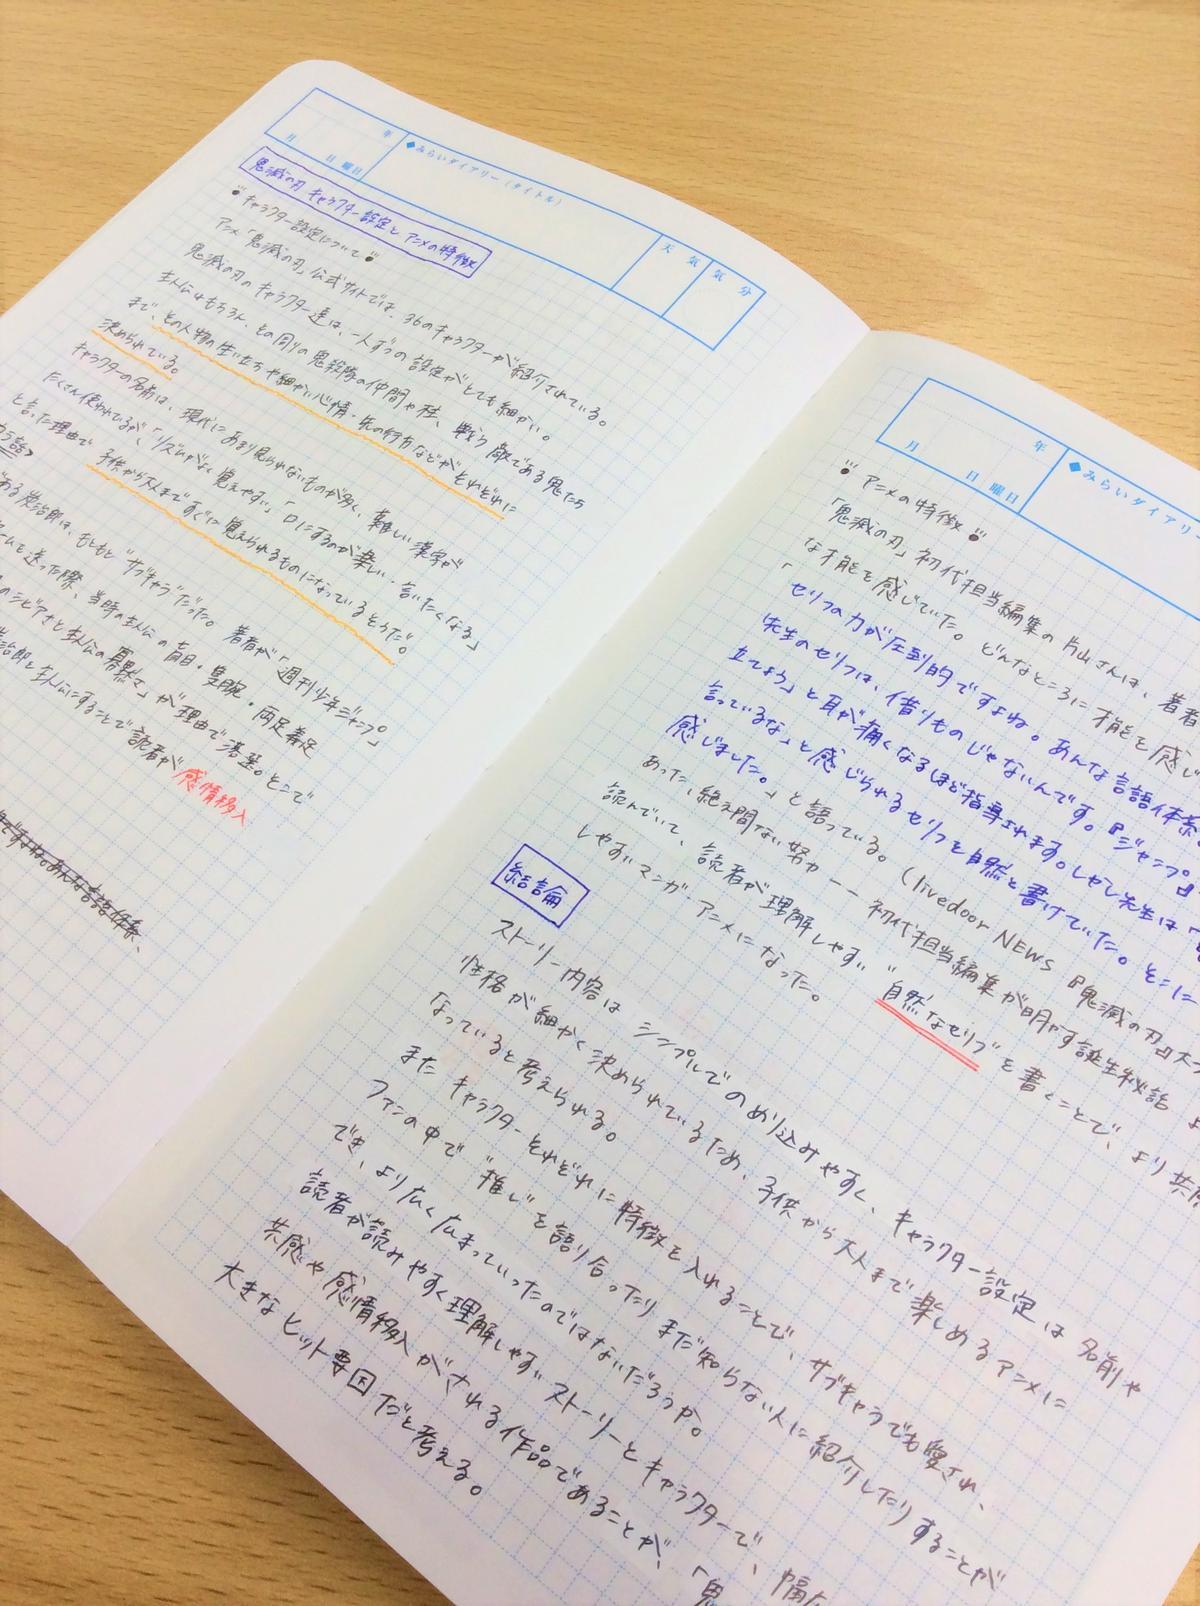 年
月 日 曜日
◆みらいダイアリー(タイトル)
天気
気分
鬼滅の刃 キャラクター設定と アニメの特徴
キャラクター設定について
アニメ「鬼滅の刃」公式サイトでは、36のキャラクターが紹介されている。
鬼滅の刃のキャラクター達は、一人ずつの設定がとても細かい。
主人公はもちろん、その周りの鬼殺隊の仲間や柱、戦う敵である鬼たち
まで、その人物の生い立ちや細かい心情・先の行方などがそれぞれに
決められている。
キャラクターの名前は、現代にあまり見られないものが多く、難しい漢字が
たくさん使われているが、「リズムがよく覚えやすい」「口にするのが楽しい・言いたくなる」
と言った理由で 子供から大人まですぐに覚えられるものになっているそうだ。
ある炭治郎は、もともと"サブキャラ"だった。著者が「週刊少年ジャンプ」
を送った際、当時の主人公の盲目・隻腕・両足義足
のシビアさと主人公の寡黙さ」が理由で落選。そこで
治郎を主人公にすることで読者が 感情移入
ですよね。あんな言語体系、
年
月 日 曜日
◆みらいダイアリー
アニメの特徴
「鬼滅の刃」初代担当編集の片山さんは、著者
な才能を感じていた。どんなところに才能を感じ
「セリフの力が圧倒的ですよね。あんな言語体系
先生のセリフは、借りものじゃないんです。『ジャンプ』
立てよう」と耳が痛くなるほど指導されます。しかし先生は「
言っているな」と感じられるセリフを自然と書けていた。そこに
感じました。」と語っている。(livedoor NEWS 『鬼滅の刃』大
あった、絶え間ない努力ーー初代担当編集が明かす誕生秘話 よ
読んでいて、読者が理解しやすい"自然なセリフ"を書くことで、より共
しやすいマンガ・アニメになった。
結論
ストーリー内容は シンプルでのめり込みやすく、キャラクター設定は 名前や
性格が細かく決められているため、子供から大人まで楽しめるアニメに
なっていると考えられる。
また キャラクターそれぞれに特徴を入れることで、サブキャラでも愛され、
ファンの中で"推し"を語り合ったり まだ知らない人に紹介したりすることが
でき、より広く広まっていったのではないだろうか。
読者が読みやすく理解しやすいストーリーとキャラクターで、幅広
共感や感情移入がされる作品であることが、「鬼
大きなヒット要因だと考える。